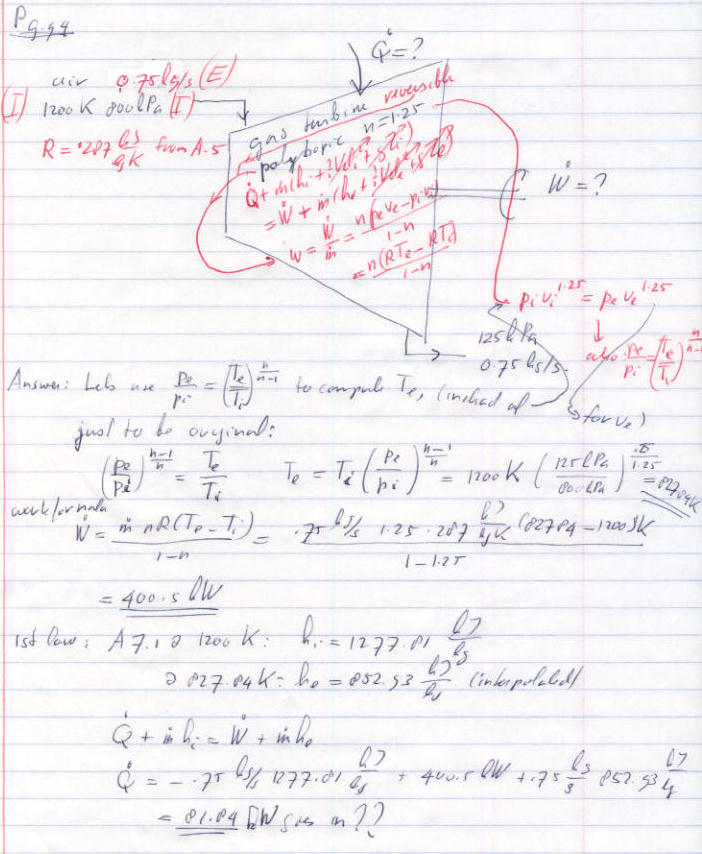 P 9.94
Q̇ = ?
air 0.75 kg/s (E)
(I) 1200 K 800 kPa (I)
R = .287 kJ/kgK from A.5
gas turbine reversible
polytropic n = 1.25
Q̇ + ṁ(hi + ½Vel_i² + gzi)
= Ẇ + ṁ(he + ½Vel_e² + gze)
w = Ẇ/ṁ = n(peve − pivi)/(1−n)
= n(RTe − RTi)/(1−n)
Ẇ = ?
pi vi^1.25 = pe ve^1.25
also: pe/pi = (Te/Ti)^(n/(n−1))
125 kPa
0.75 kg/s
Answer: Lets use pe/pi = (Te/Ti)^(n/(n−1)) to compute Te, (instead of
for ve)
just to be original:
(pe/pi)^((n−1)/n) = Te/Ti Te = Ti (pe/pi)^((n−1)/n) = 1200 K (125 kPa/800 kPa)^(.25/1.25) = 827.84 K
work formula
Ẇ = ṁ nR(Te − Ti)/(1−n) = .75 kg/s 1.25 .287 kJ/kgK (827.84 − 1200)K/(1 − 1.25)
= 400.5 kW
1st law: A 7.1 @ 1200 K: hi = 1277.81 kJ/kg
@ 827.84 K: he = 852.93 kJ/kg (interpolated)
Q̇ + ṁ hi = Ẇ + ṁ he
Q̇ = − .75 kg/s 1277.81 kJ/kg + 400.5 kW + .75 kg/s 852.93 kJ/kg
= 81.84 kW goes in ??